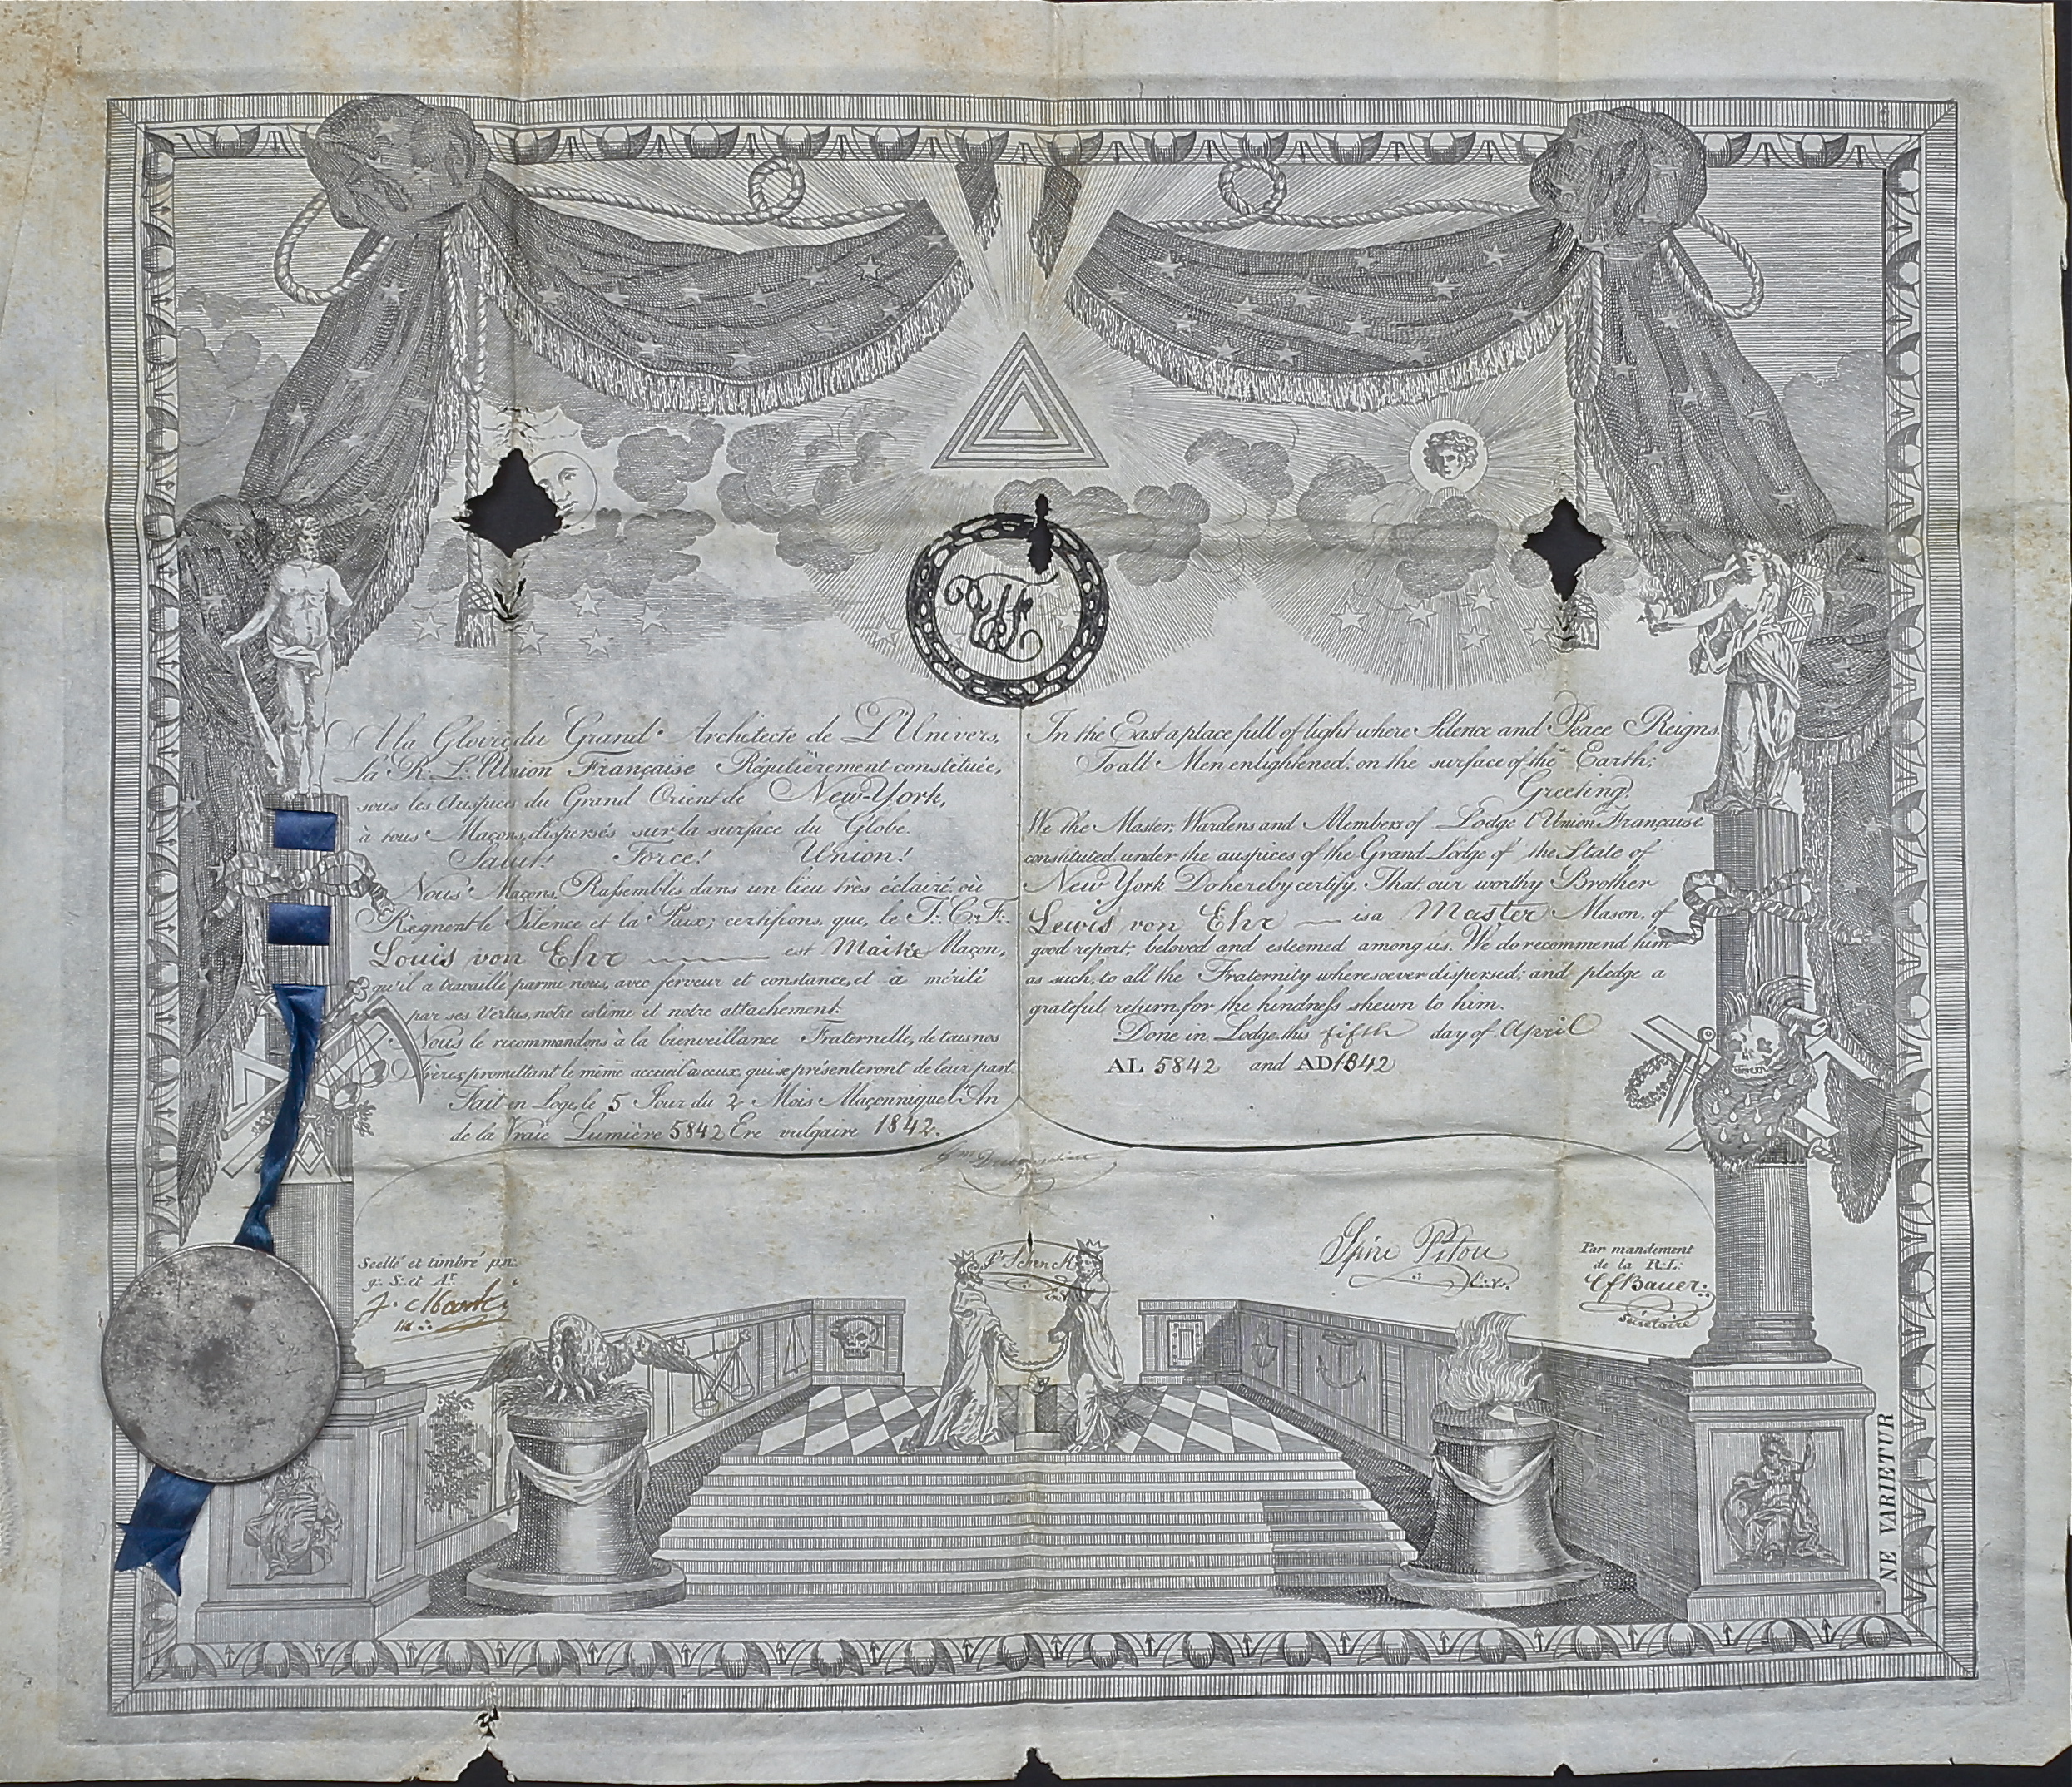 A la Gloire du Grand Architecte de L'Univers,
La R. L. l'Union Française Régulièrement constituée,
sous les Auspices du Grand Orient de New-York,
à tous Maçons, dispersés sur la surface du Globe.
Salut! Force! Union!
Nous Maçons, Rassemblés dans un lieu très éclairé, où
Règnent le Silence et la Paix; certifions, que, le T. C. F.
Louis von Ehr est Maître Maçon,
qu'il a travaillé parmi nous, avec ferveur et constance, et a mérité
par ses Vertus, notre estime et notre attachement.
Nous le recommandons à la bienveillance Fraternelle, de tous nos
Frères, promettant le même accueil à ceux, qui se présenteront de leur part.
Fait en Loge, le 5 Jour du 2 Mois Maçonnique l'An
de la Vraie Lumière 5842 Ere vulgaire 1842.
In the East a place full of light where Silence and Peace Reigns.
To all Men enlightened: on the surface of the Earth;
Greeting.
We the Master, Wardens and Members of Lodge l'Union Française
constituted under the auspices of the Grand Lodge of the State of
New York Do hereby certify, That our worthy Brother
Lewis von Ehr is a Master Mason, of
good report, beloved and esteemed among us. We do recommend him
as such, to all the Fraternity wheresoever dispersed; and pledge a
grateful return, for the kindness shewn to him.
Done in Lodge, this fifth day of April
AL 5842 and AD 1842
Scellé et timbré p. n.
g. S. et A.
P. Schenck
Spire Pitou
Par mandement
de la R. L.
CfBauer
Secrétaire
NE VARIETUR